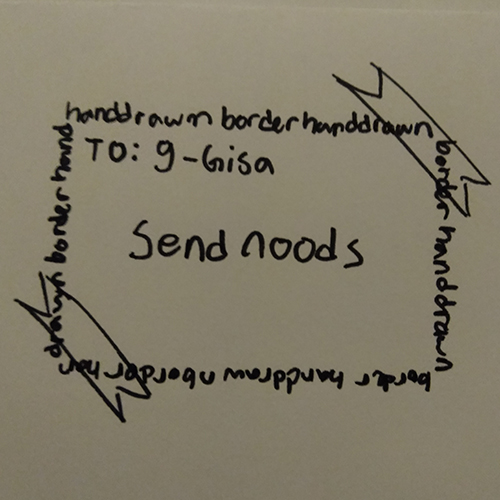 handdrawn border handdrawn
border handdrawn
border handdrawn border han
drawn border hand
TO: g-Gisa
Send noods